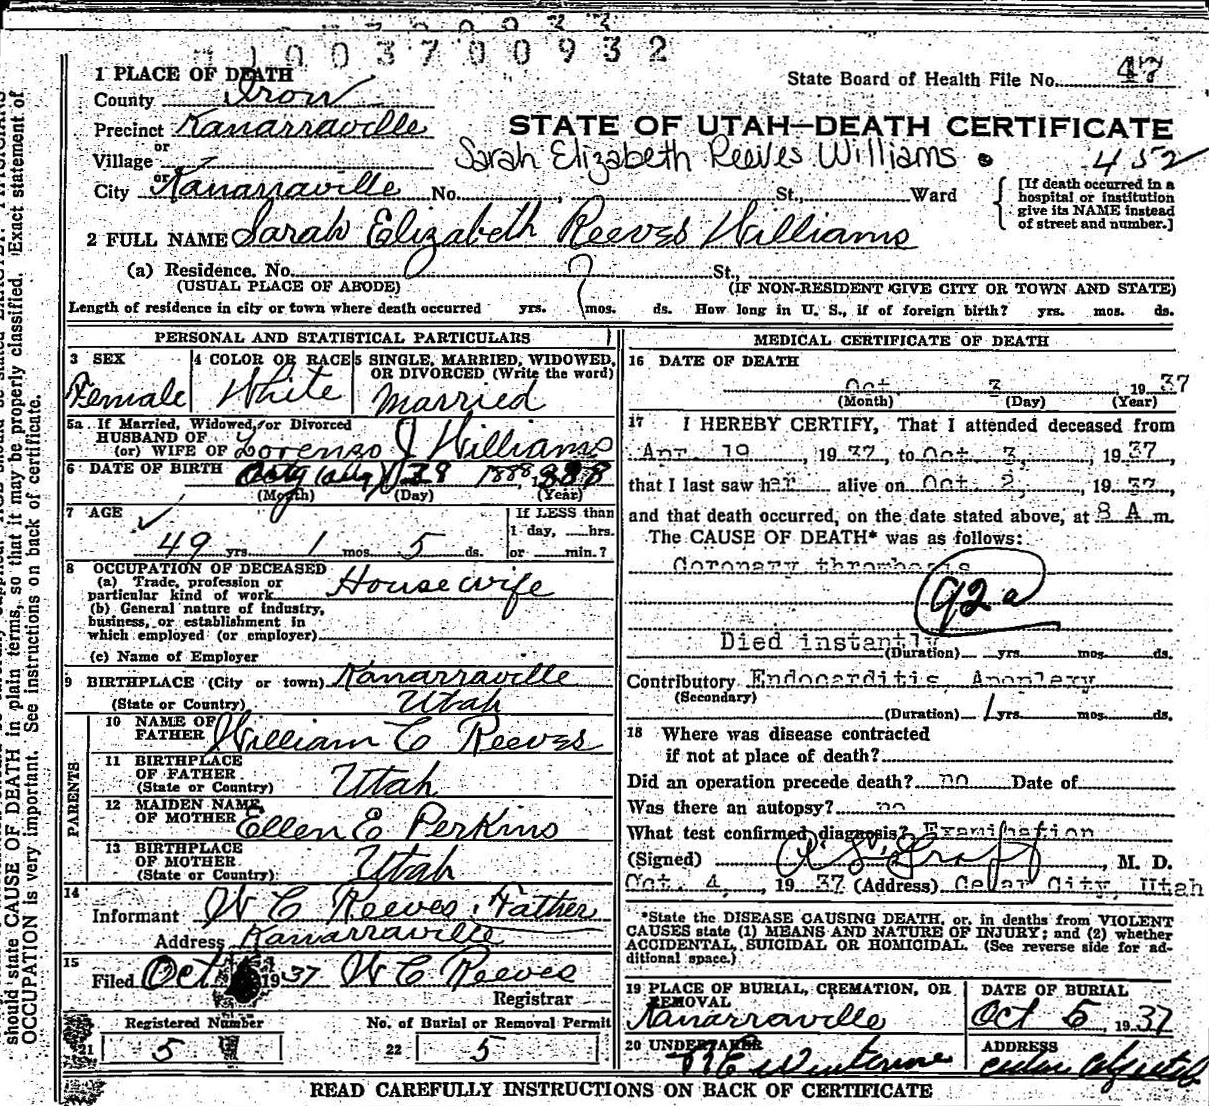 1003700932
1 PLACE OF DEATH
State Board of Health File No. 47
County Iron
Precinct Kanarraville
STATE OF UTAH—DEATH CERTIFICATE
or
Village
Sarah Elizabeth Reeves Williams . 452
or
City Kanarraville No. , St., Ward
[If death occurred in a
hospital or institution
give its NAME instead
of street and number.]
2 FULL NAME Sarah Elizabeth Reeves Williams
(a) Residence. No. ? St.,
(USUAL PLACE OF ABODE) (IF NON-RESIDENT GIVE CITY OR TOWN AND STATE)
Length of residence in city or town where death occurred yrs. mos. ds. How long in U. S., if of foreign birth? yrs. mos. ds.
PERSONAL AND STATISTICAL PARTICULARS
3 SEX
Female
4 COLOR OR RACE
White
5 SINGLE, MARRIED, WIDOWED,
OR DIVORCED (Write the word)
Married
5a If Married, Widowed, or Divorced
HUSBAND OF
(or) WIFE OF Lorenzo J Williams
6 DATE OF BIRTH 1888
(Month) (Day) (Year)
7 AGE
If LESS than
1 day, hrs.
49 yrs. 1 mos. 5 ds. or min.?
8 OCCUPATION OF DECEASED
(a) Trade, profession or
particular kind of work Housewife
(b) General nature of industry,
business, or establishment in
which employed (or employer)
(c) Name of Employer
9 BIRTHPLACE (City or town) Kanarraville
(State or Country) Utah
PARENTS
10 NAME OF
FATHER William C Reeves
11 BIRTHPLACE
OF FATHER
(State or Country) Utah
12 MAIDEN NAME
OF MOTHER Ellen E Perkins
13 BIRTHPLACE
OF MOTHER
(State or Country) Utah
14
Informant W C Reeves, Father
Address Kanarraville
15
Filed Oct 1937 W C Reeves
Registrar
Registered Number
21 5
No. of Burial or Removal Permit
22 5
MEDICAL CERTIFICATE OF DEATH
16 DATE OF DEATH
Oct 3 1937
(Month) (Day) (Year)
17 I HEREBY CERTIFY, That I attended deceased from
Apr. 19, 1937, to Oct. 3, 1937,
that I last saw her alive on Oct. 2, 1937,
and that death occurred, on the date stated above, at 8 A m.
The CAUSE OF DEATH* was as follows:
Coronary thrombosis
92a
Died instantly
(Duration) yrs. mos. ds.
Contributory Endocarditis, Apoplexy
(Secondary)
(Duration) 1 yrs. mos. ds.
18 Where was disease contracted
if not at place of death?
Did an operation precede death? no Date of
Was there an autopsy? no
What test confirmed diagnosis? Examination
(Signed) , M. D.
Oct. 4, 1937 (Address) Cedar City, Utah
*State the DISEASE CAUSING DEATH, or, in deaths from VIOLENT
CAUSES state (1) MEANS AND NATURE OF INJURY; and (2) whether
ACCIDENTAL, SUICIDAL OR HOMICIDAL. (See reverse side for ad-
ditional space.)
19 PLACE OF BURIAL, CREMATION, OR
REMOVAL
Kanarraville
DATE OF BURIAL
Oct 5, 1937
20 UNDERTAKER
ADDRESS
READ CAREFULLY INSTRUCTIONS ON BACK OF CERTIFICATE
should state CAUSE OF DEATH in plain terms, so that it may be properly classified. Exact statement of
OCCUPATION is very important. See instructions on back of certificate.